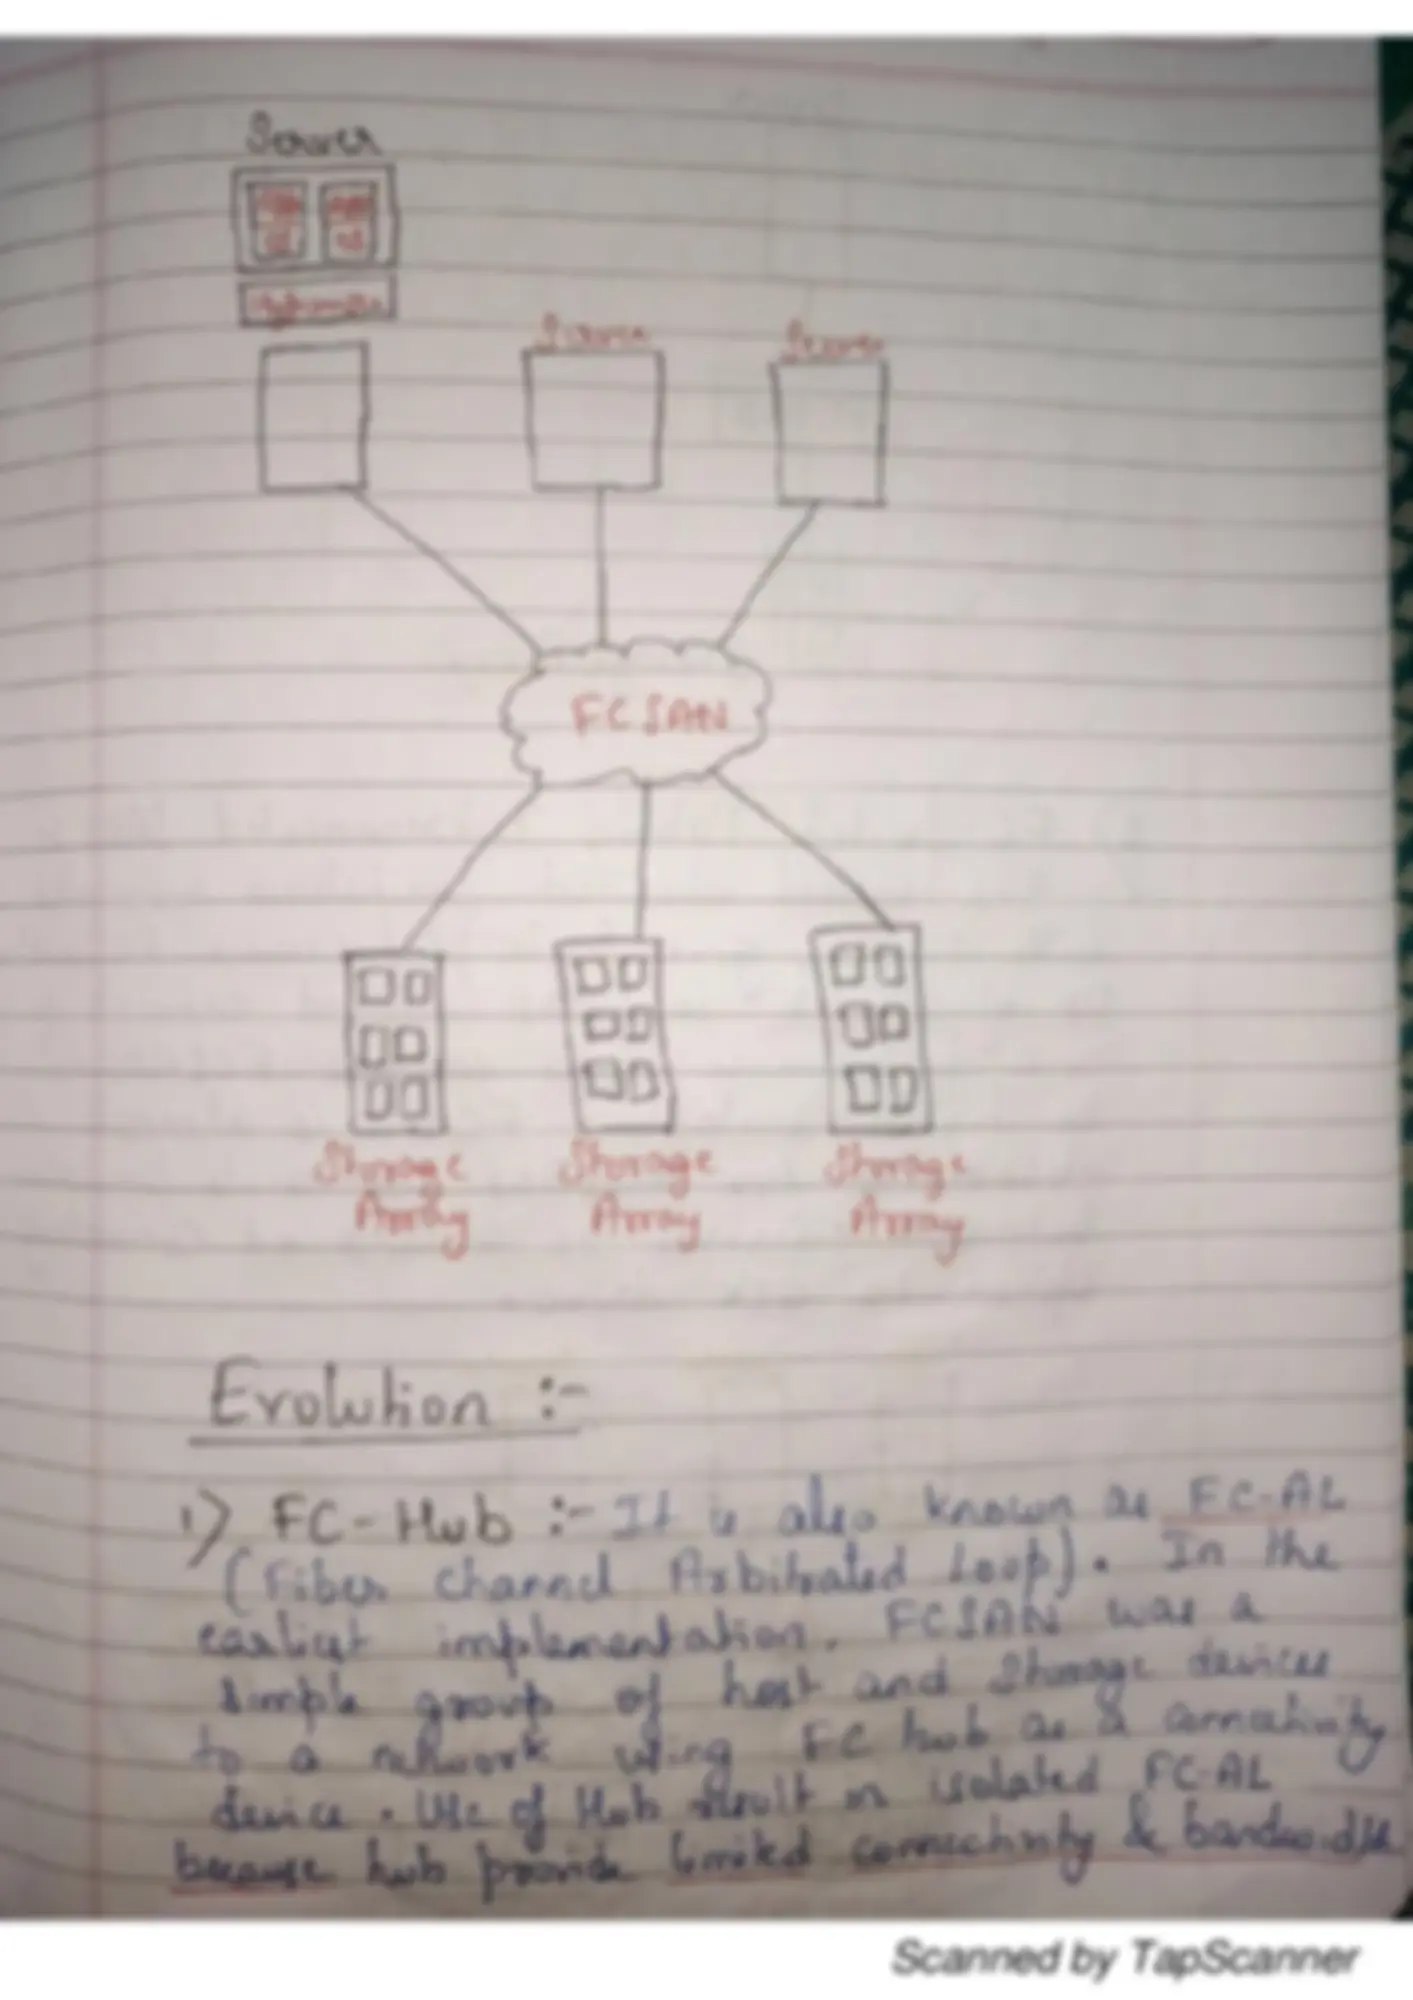 Server
APP
OS
APP
OS
Hypervisor
Server
Server
FC SAN
Storage
Array
Storage
Array
Storage
Array
Evolution :-
1) FC-Hub :- It is also known as FC-AL
(Fiber Channel Arbitrated Loop). In the
earliest implementation, FCSAN was a
simple group of host and Storage devices
to a network using FC hub as a connectivity
device. Use of Hub result in isolated FC-AL
because hub provide limited connectivity & bandwidth
Scanned by TapScanner